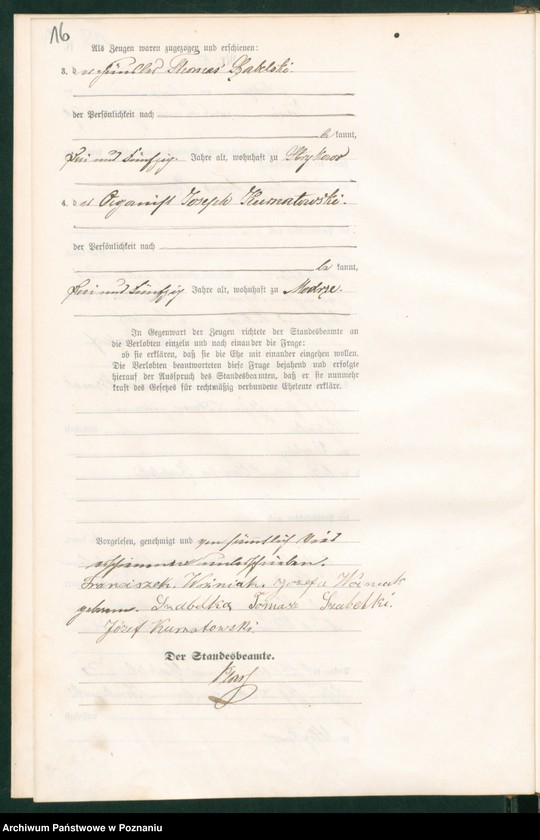 16
Als Zeugen waren zugezogen und erschienen:
3. der Häusler Thomas Szabelski.
der Persönlichkeit nach
be kannt,
drei und fünfzig Jahre alt, wohnhaft zu Strykowo
4. der Organist Joseph Kumatowski.
der Persönlichkeit nach
be kannt,
drei und fünfzig Jahre alt, wohnhaft zu Modrze.
In Gegenwart der Zeugen richtete der Standesbeamte an
die Verlobten einzeln und nach einander die Frage:
ob sie erklären, daß sie die Ehe mit einander eingehen wollen.
Die Verlobten beantworteten diese Frage bejahend und erfolgte
hierauf der Ausspruch des Standesbeamten, daß er sie nunmehr
kraft des Gesetzes für rechtmäßig verbundene Eheleute erkläre.
Vorgelesen, genehmigt und von sämtlich
erschienenen unterschrieben.
Franciszek Woźniak. Józefa Woźniak
geborene Tomasz Szabelski.
Józef Kumatowski.
Der Standesbeamte.
Archiwum Państwowe w Poznaniu